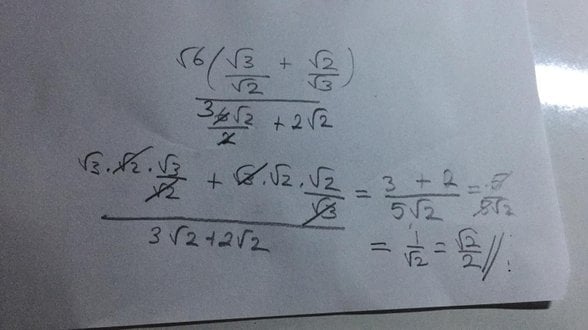 √6 ( √3/√2 + √2/√3 )
3 6√2/2 + 2√2
√3 · √2 · √3/√2 + √3 · √2 · √2/√3 = 3 + 2 / 5√2 = 5/5√2
3√2 + 2√2
= 1/√2 = √2/2 //